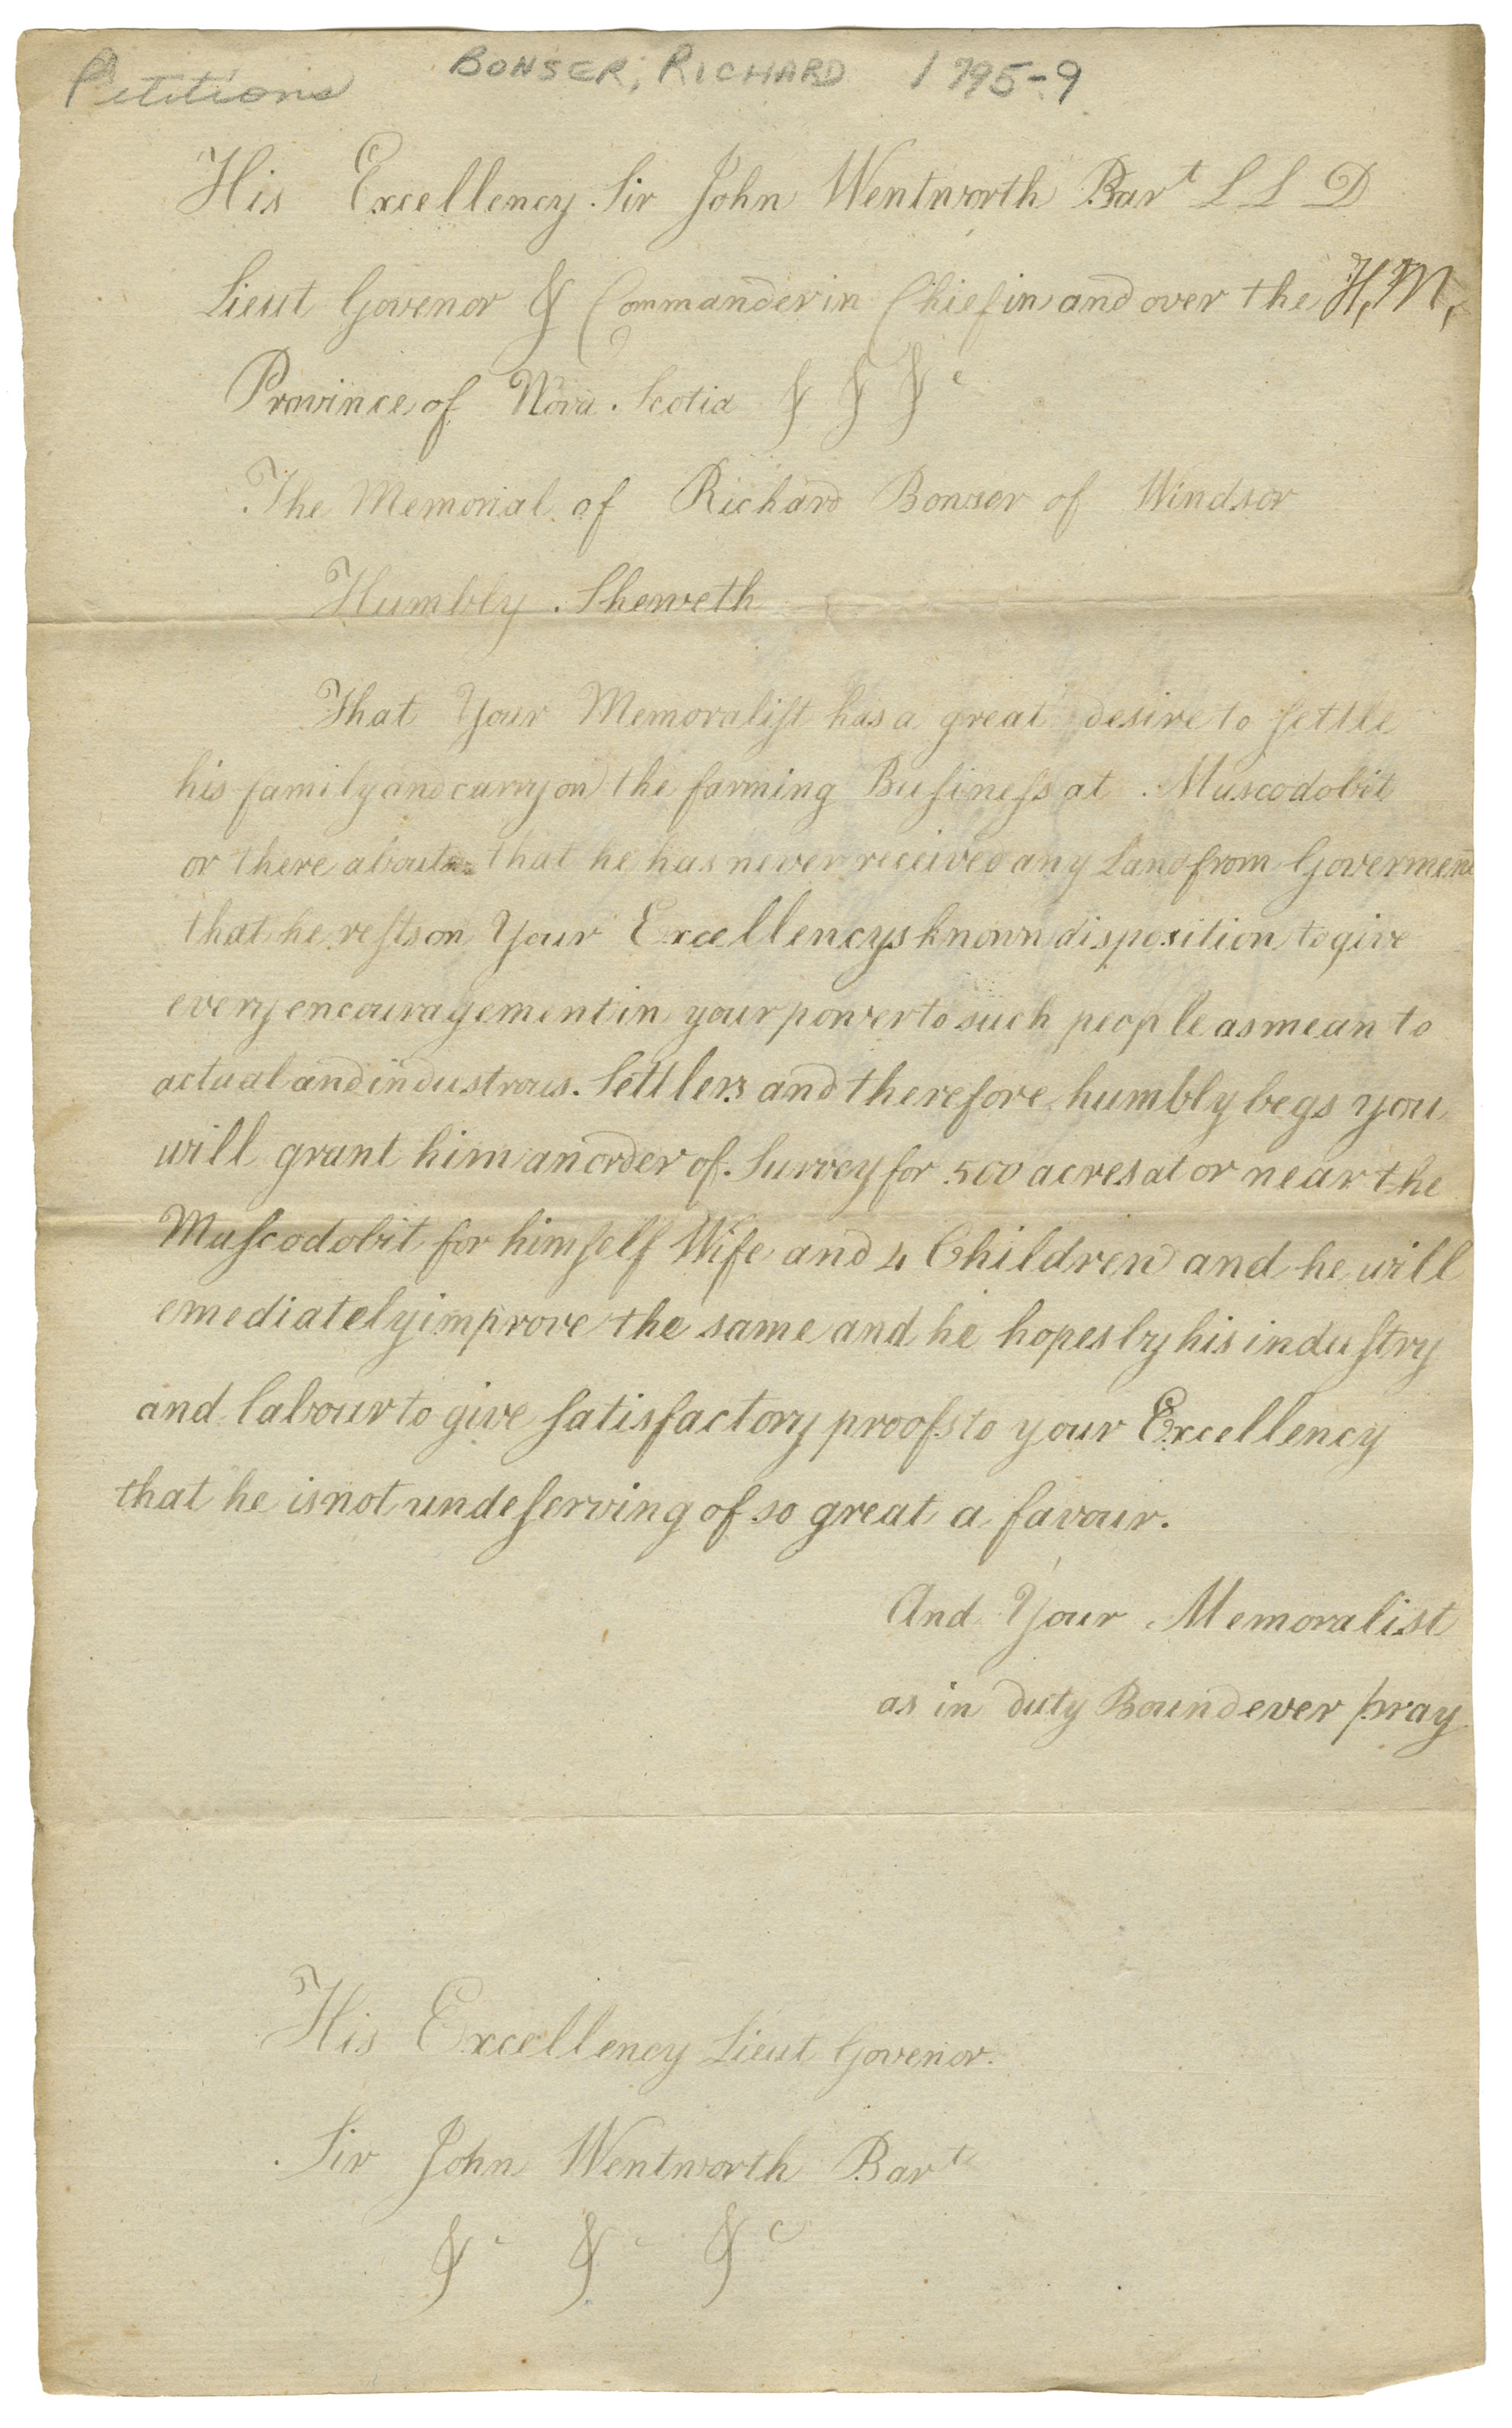 Petitions BONSER, RICHARD 1795-9
His Excellency Sir John Wentworth Bart L L D
Lieut Govenor & Commander in Chief in and over the H,M,
Province of Nova Scotia & & &c
The Memorial of Richard Bonser of Windsor
Humbly Sheweth
That Your Memoraliſt has a great desire to ſettle
his family and carry on the farming Buſineſs at Muscodobit
or there abouts that he has never received any Land from Goverment
that he reſts on Your Excellencys known disposition to give
every encouragement in your power to such people as mean to
actual and industrous Settlers and therefore humbly begs you
will grant him an order of Survey for 500 acres at or near the
Muſcodobit for himſelf Wife and 4 Children and he will
emediately improve the same and he hopes by his induſtry
and labour to give ſatisfactory proofs to your Excellency
that he is not undeſerving of so great a favour.
And Your Memoralist
as in duty Bound ever pray
His Excellency Lieut Govenor
Sir John Wentworth Bart
&c &c &c